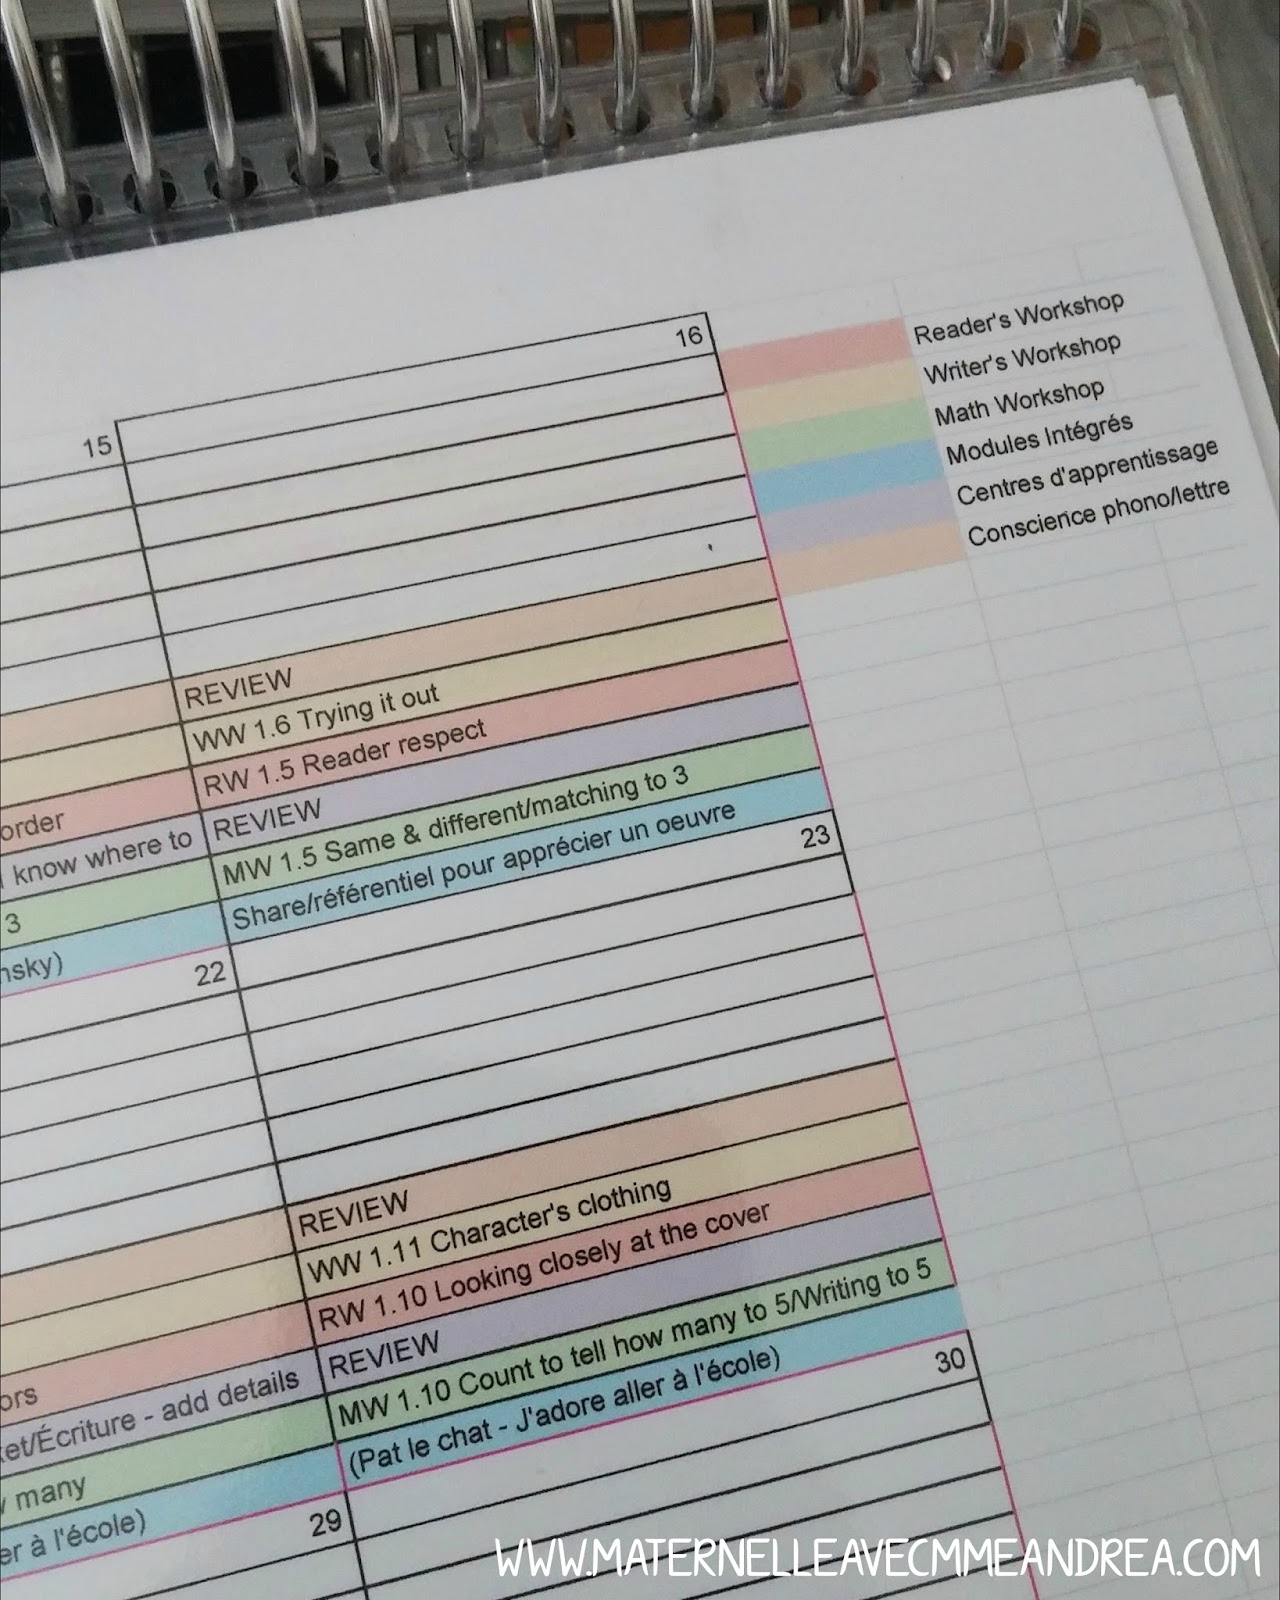 16
Reader's Workshop
Writer's Workshop
Math Workshop
Modules Intégrés
Centres d'apprentissage
Conscience phono/lettre
15
REVIEW
WW 1.6 Trying it out
RW 1.5 Reader respect
order
REVIEW
know where to
MW 1.5 Same & different/matching to 3
3
Share/référentiel pour apprécier un oeuvre
nsky)
23
22
REVIEW
WW 1.11 Character's clothing
RW 1.10 Looking closely at the cover
ors
REVIEW
ket/Écriture - add details
MW 1.10 Count to tell how many to 5/Writing to 5
many
(Pat le chat - J'adore aller à l'école)
er à l'école)
30
29
WWW.MATERNELLEAVECMMEANDREA.COM